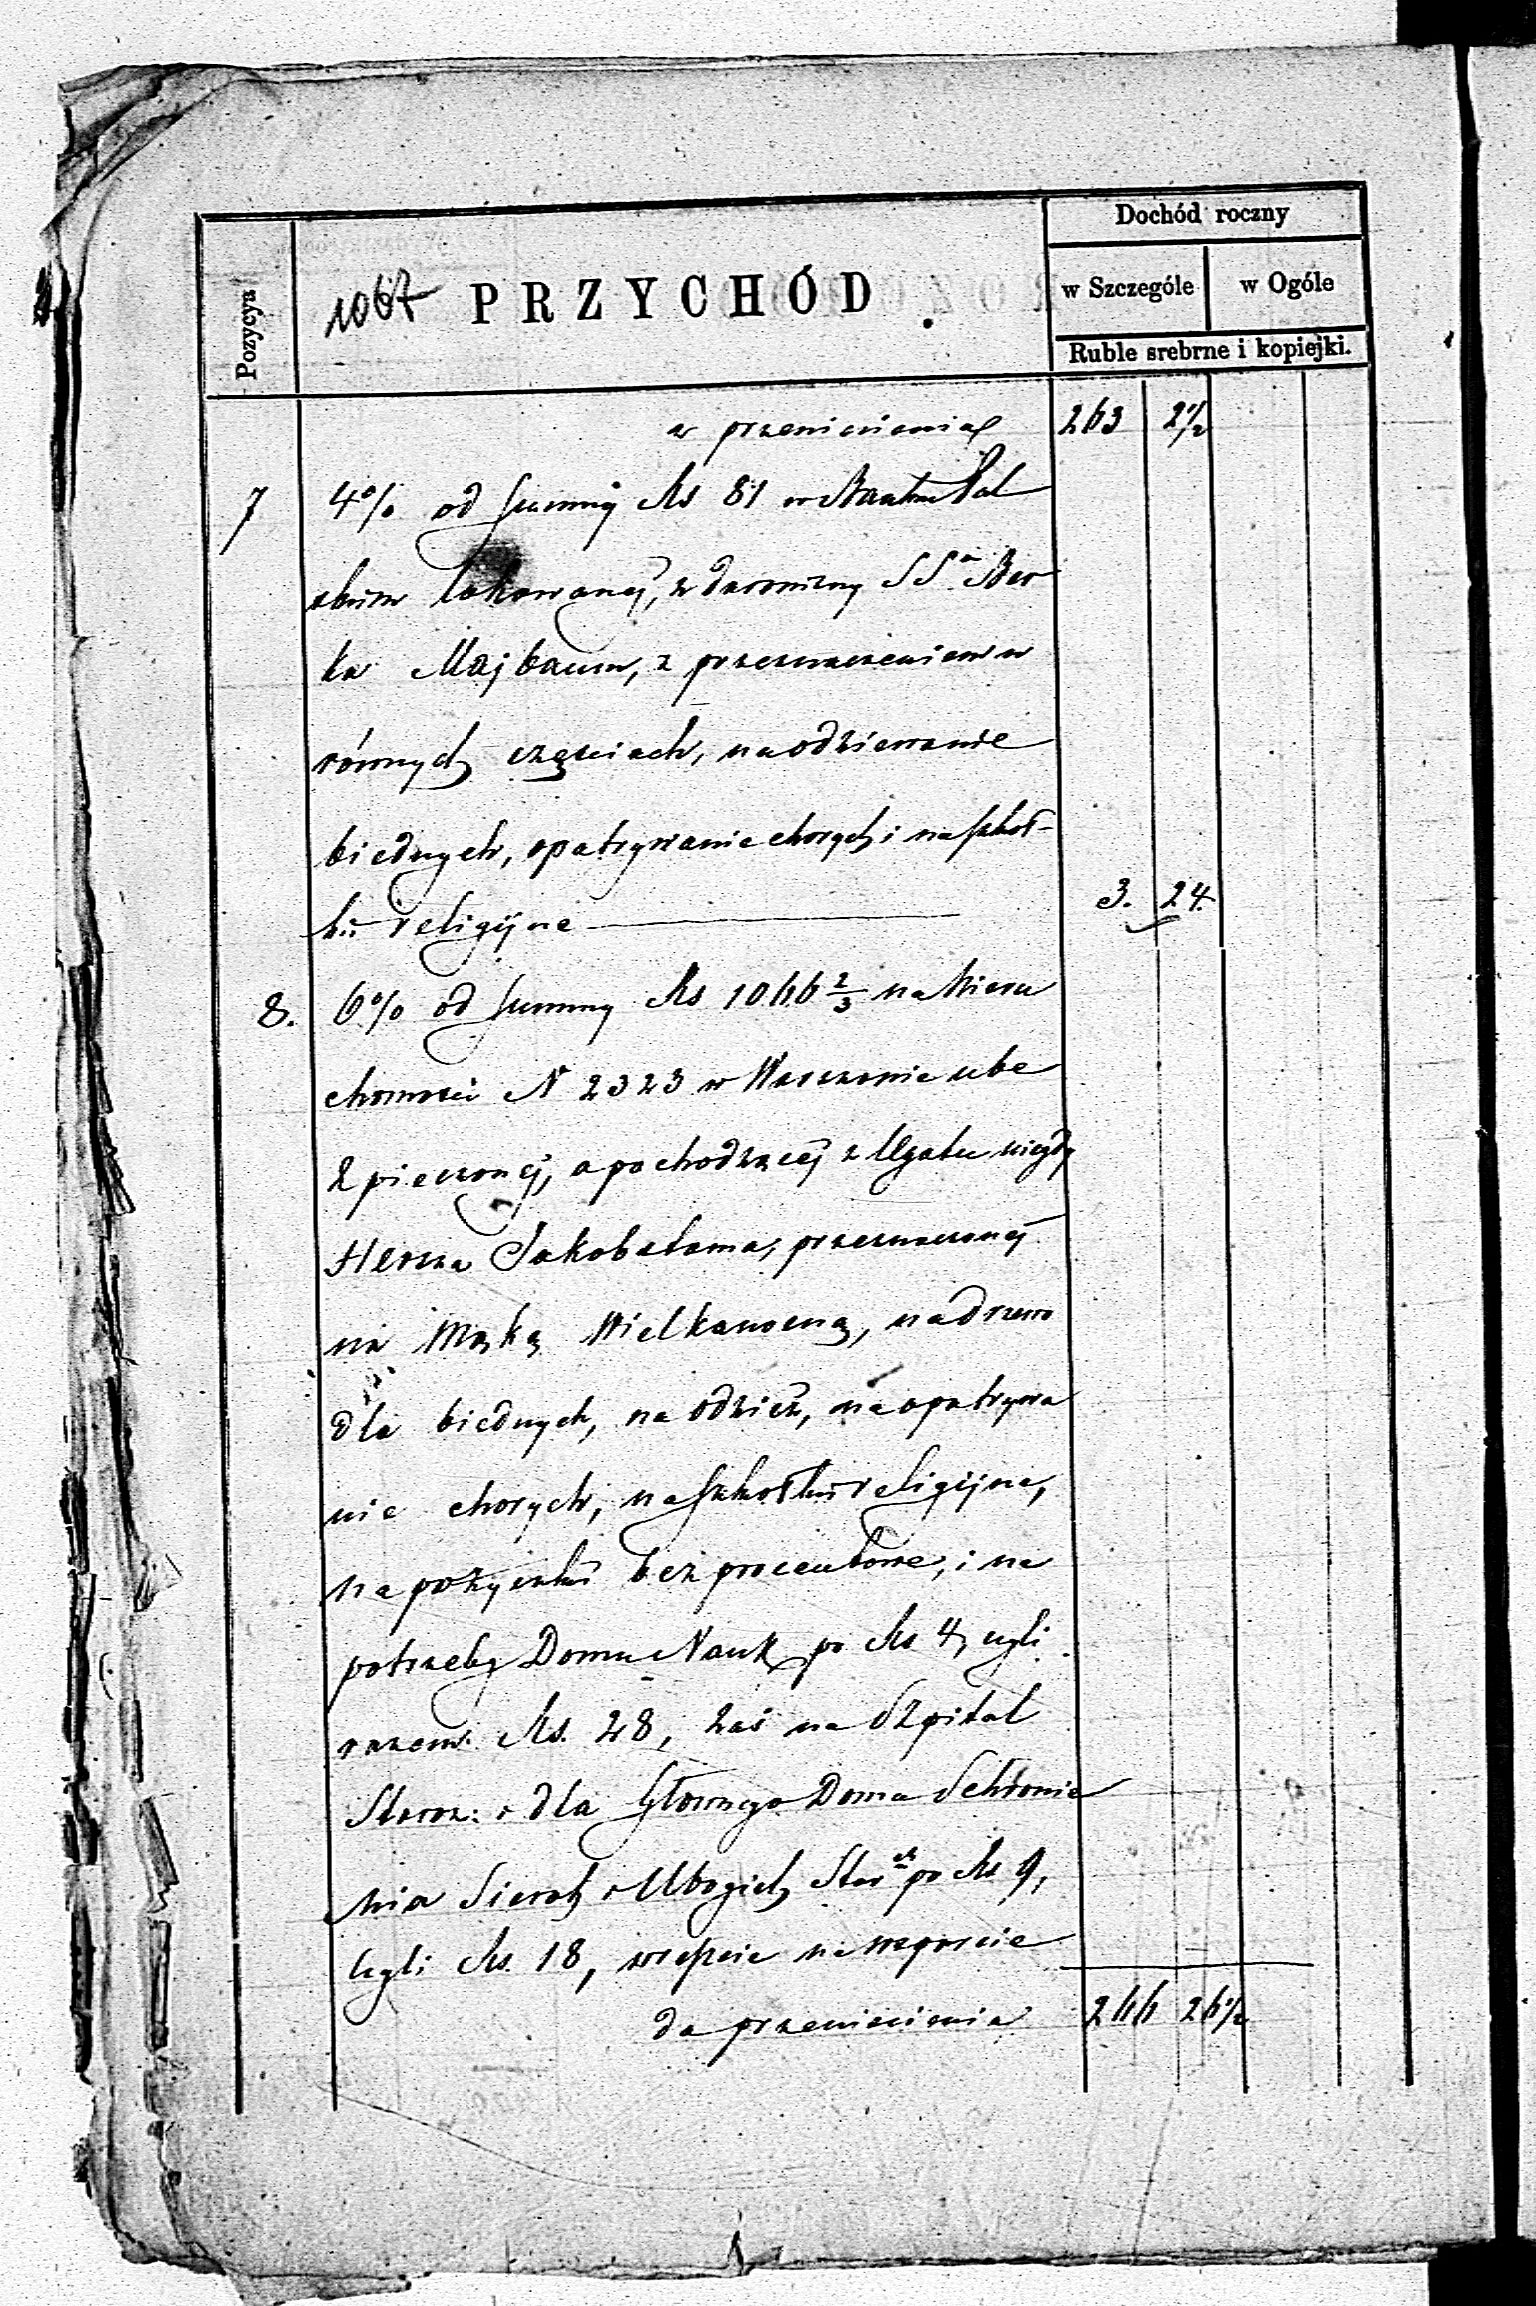 Dochód roczny
Pozycya
1067 PRZYCHÓD.
w Szczególe w Ogóle
Ruble srebrne i kopiejki.
z przeniesienia 263 2½
7 4% od Summy Rs 81 w Banku Pol
skim lokowanej, z darowizny SSra Ber
ka Majbaum, z przeznaczeniem w
równych częściach, na odziewanie
biednych, opatrywanie chorych i na szkoł-
ki religijne 3. 24.
8. 6% od Summy Rs 1066 2/3 na Nieru
chomości N 2323 w Warszawie ube
zpieczonej, a pochodzącej z legatu niegdy
Hersza Jakobsfama, przeznaczonej
na Mąkę Wielkanocną, na drzewo
dla biednych, na odzież, na opatrywa
nie chorych, na szkołki religijne,
na pożyczki bezprocentowe, i na
potrzeby Domu Nauk po Rs 4, czyli
razem Rs. 28, zaś na Szpital
Staroz: i dla Głównego Domu Schronie
nia Sierot i Ubogich Starch po Rs 9,
czyli Rs. 18, wreszcie na wsparcie
do przeniesienia 266 26½